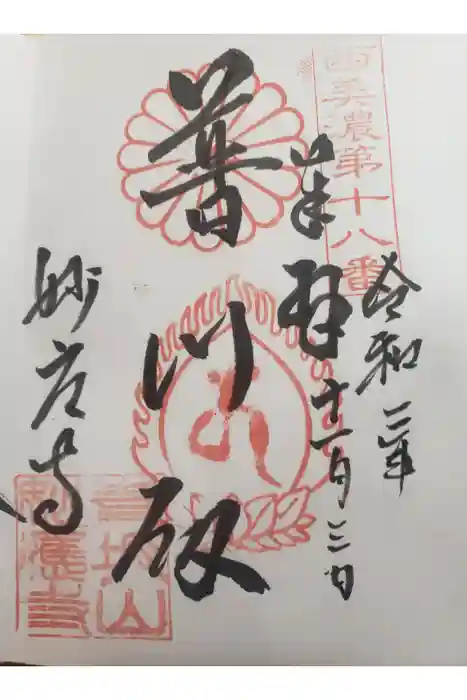 西美濃第十八番
令和二年
十一月三日
奉拝
普門殿
妙応寺
青坂山
妙應寺